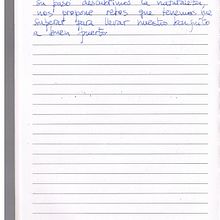 su paso descubrimos la naturaleza
nos propone retos que tenemos que
superar para llevar nuestro barquito
a buen puerto.